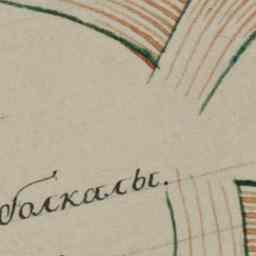 болкалы.